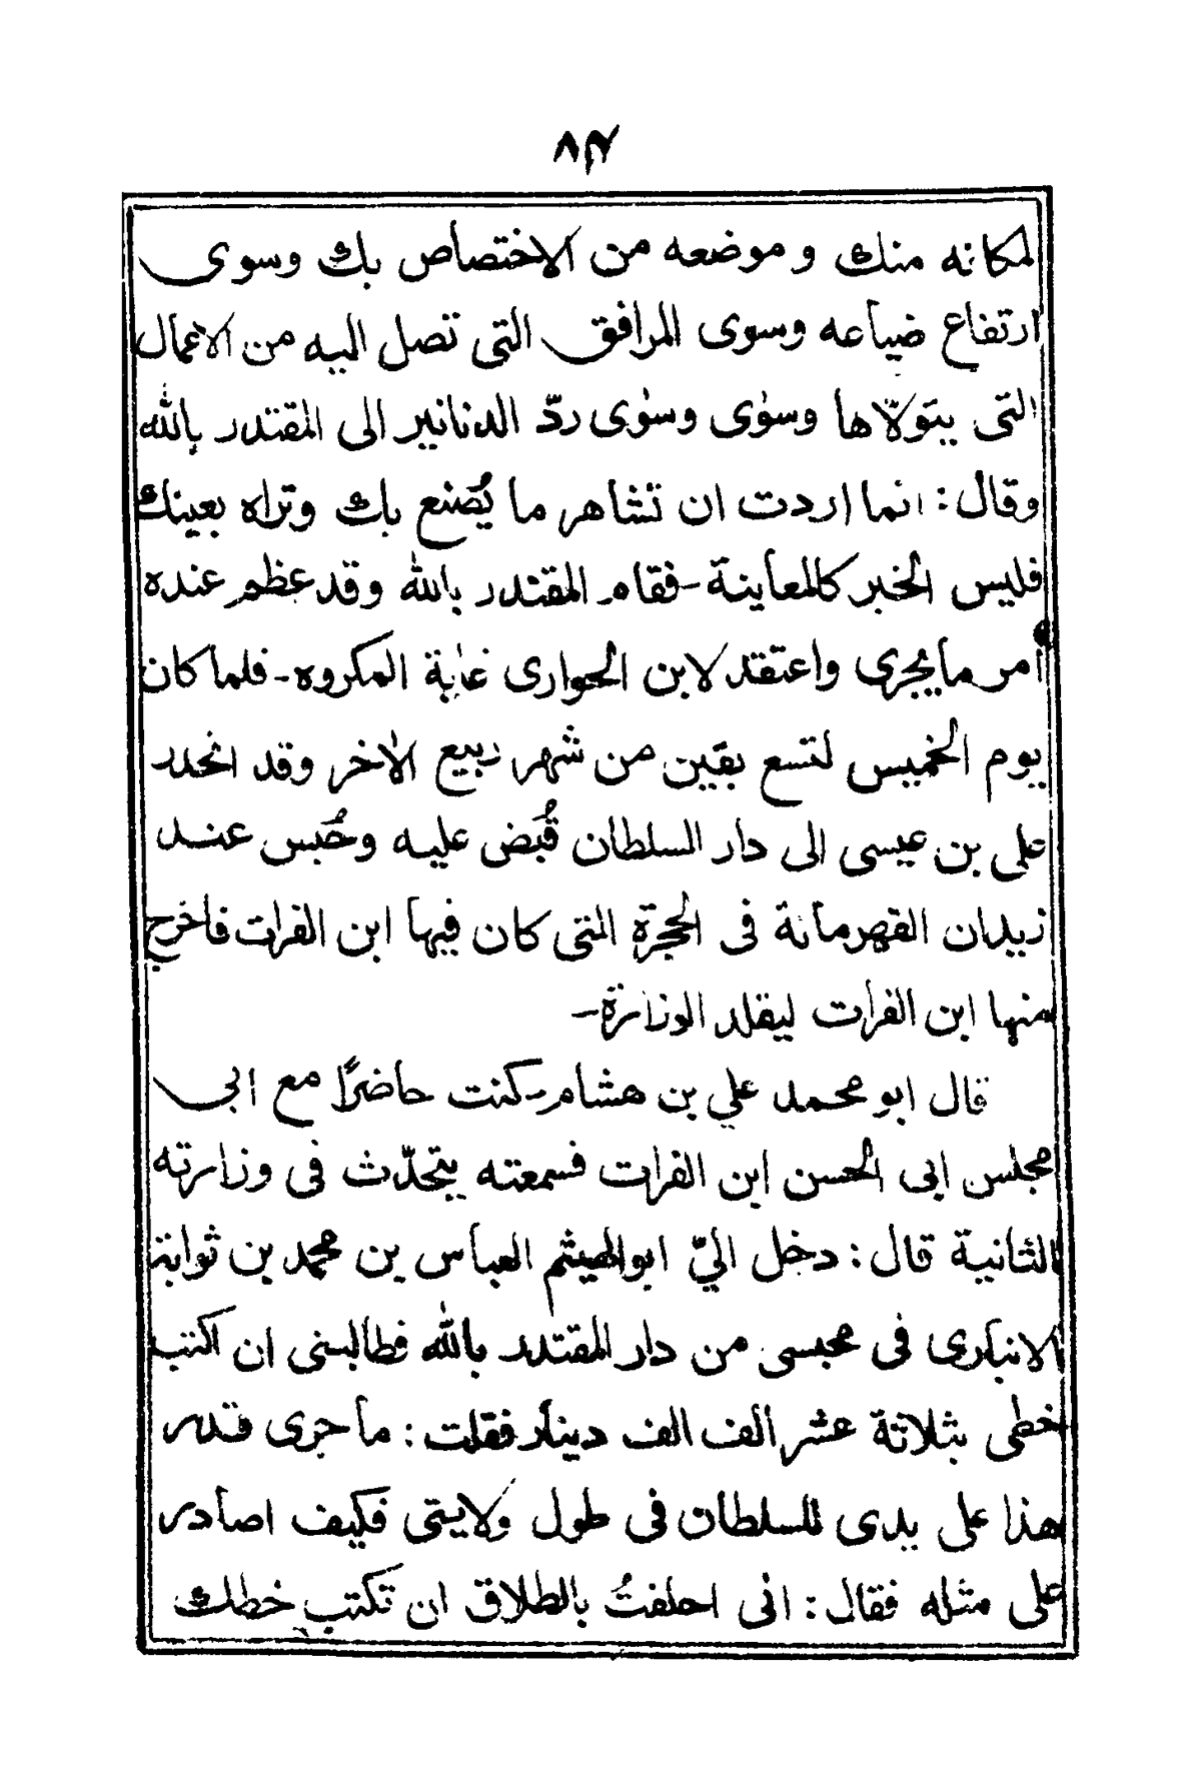 ٨٣
لمكانه منك و موضعه من الاختصاص بك وسوى
ارتفاع ضياعه وسوى المرافق التى تصل اليه من الاعمال
التى يتولّاها وسوٰى وسوٰى ردّ الدنانير الى المقتدر بالله
وقال: انما اردت ان تشاهر ما يُصَنع بك وتراه بعينك
فليس الخبر كالمعاينة - فقام المقتدر بالله وقد عظم عنده
امر مايجرى واعتقد لابن الحوارى غاية المكروه - فلما كان
يوم الخميس لتسع بقين من شهر ربيع الاٰخر وقد انحدر
على بن عيسى الى دار السلطان قُبَض عليه وحُبس عند
زيدان القهرمانة فى الحجرة التى كان فيها ابن الفرات فاخرج
منها ابن الفرات ليقلد الوزارة -
قال ابو محمد علي بن هشام - كنت حاضرًا مع ابى
مجلس ابى الحسن ابن الفرات فسمعته يتحدّث فى وزارته
الثانية قال: دخل اليّ ابوالهيثم العباس بن محمد بن ثوابة
الانبارى فى محبسى من دار المقتدر بالله فطالبنى ان اكتب
خطى بثلاثة عشر الف الف دينار فقلت: ما جرى قدر
هذا على يدى للسلطان فى طول ولايتى فكيف اصادر
على مثله فقال: انى احلفتُ بالطلاق ان تكتب خطك